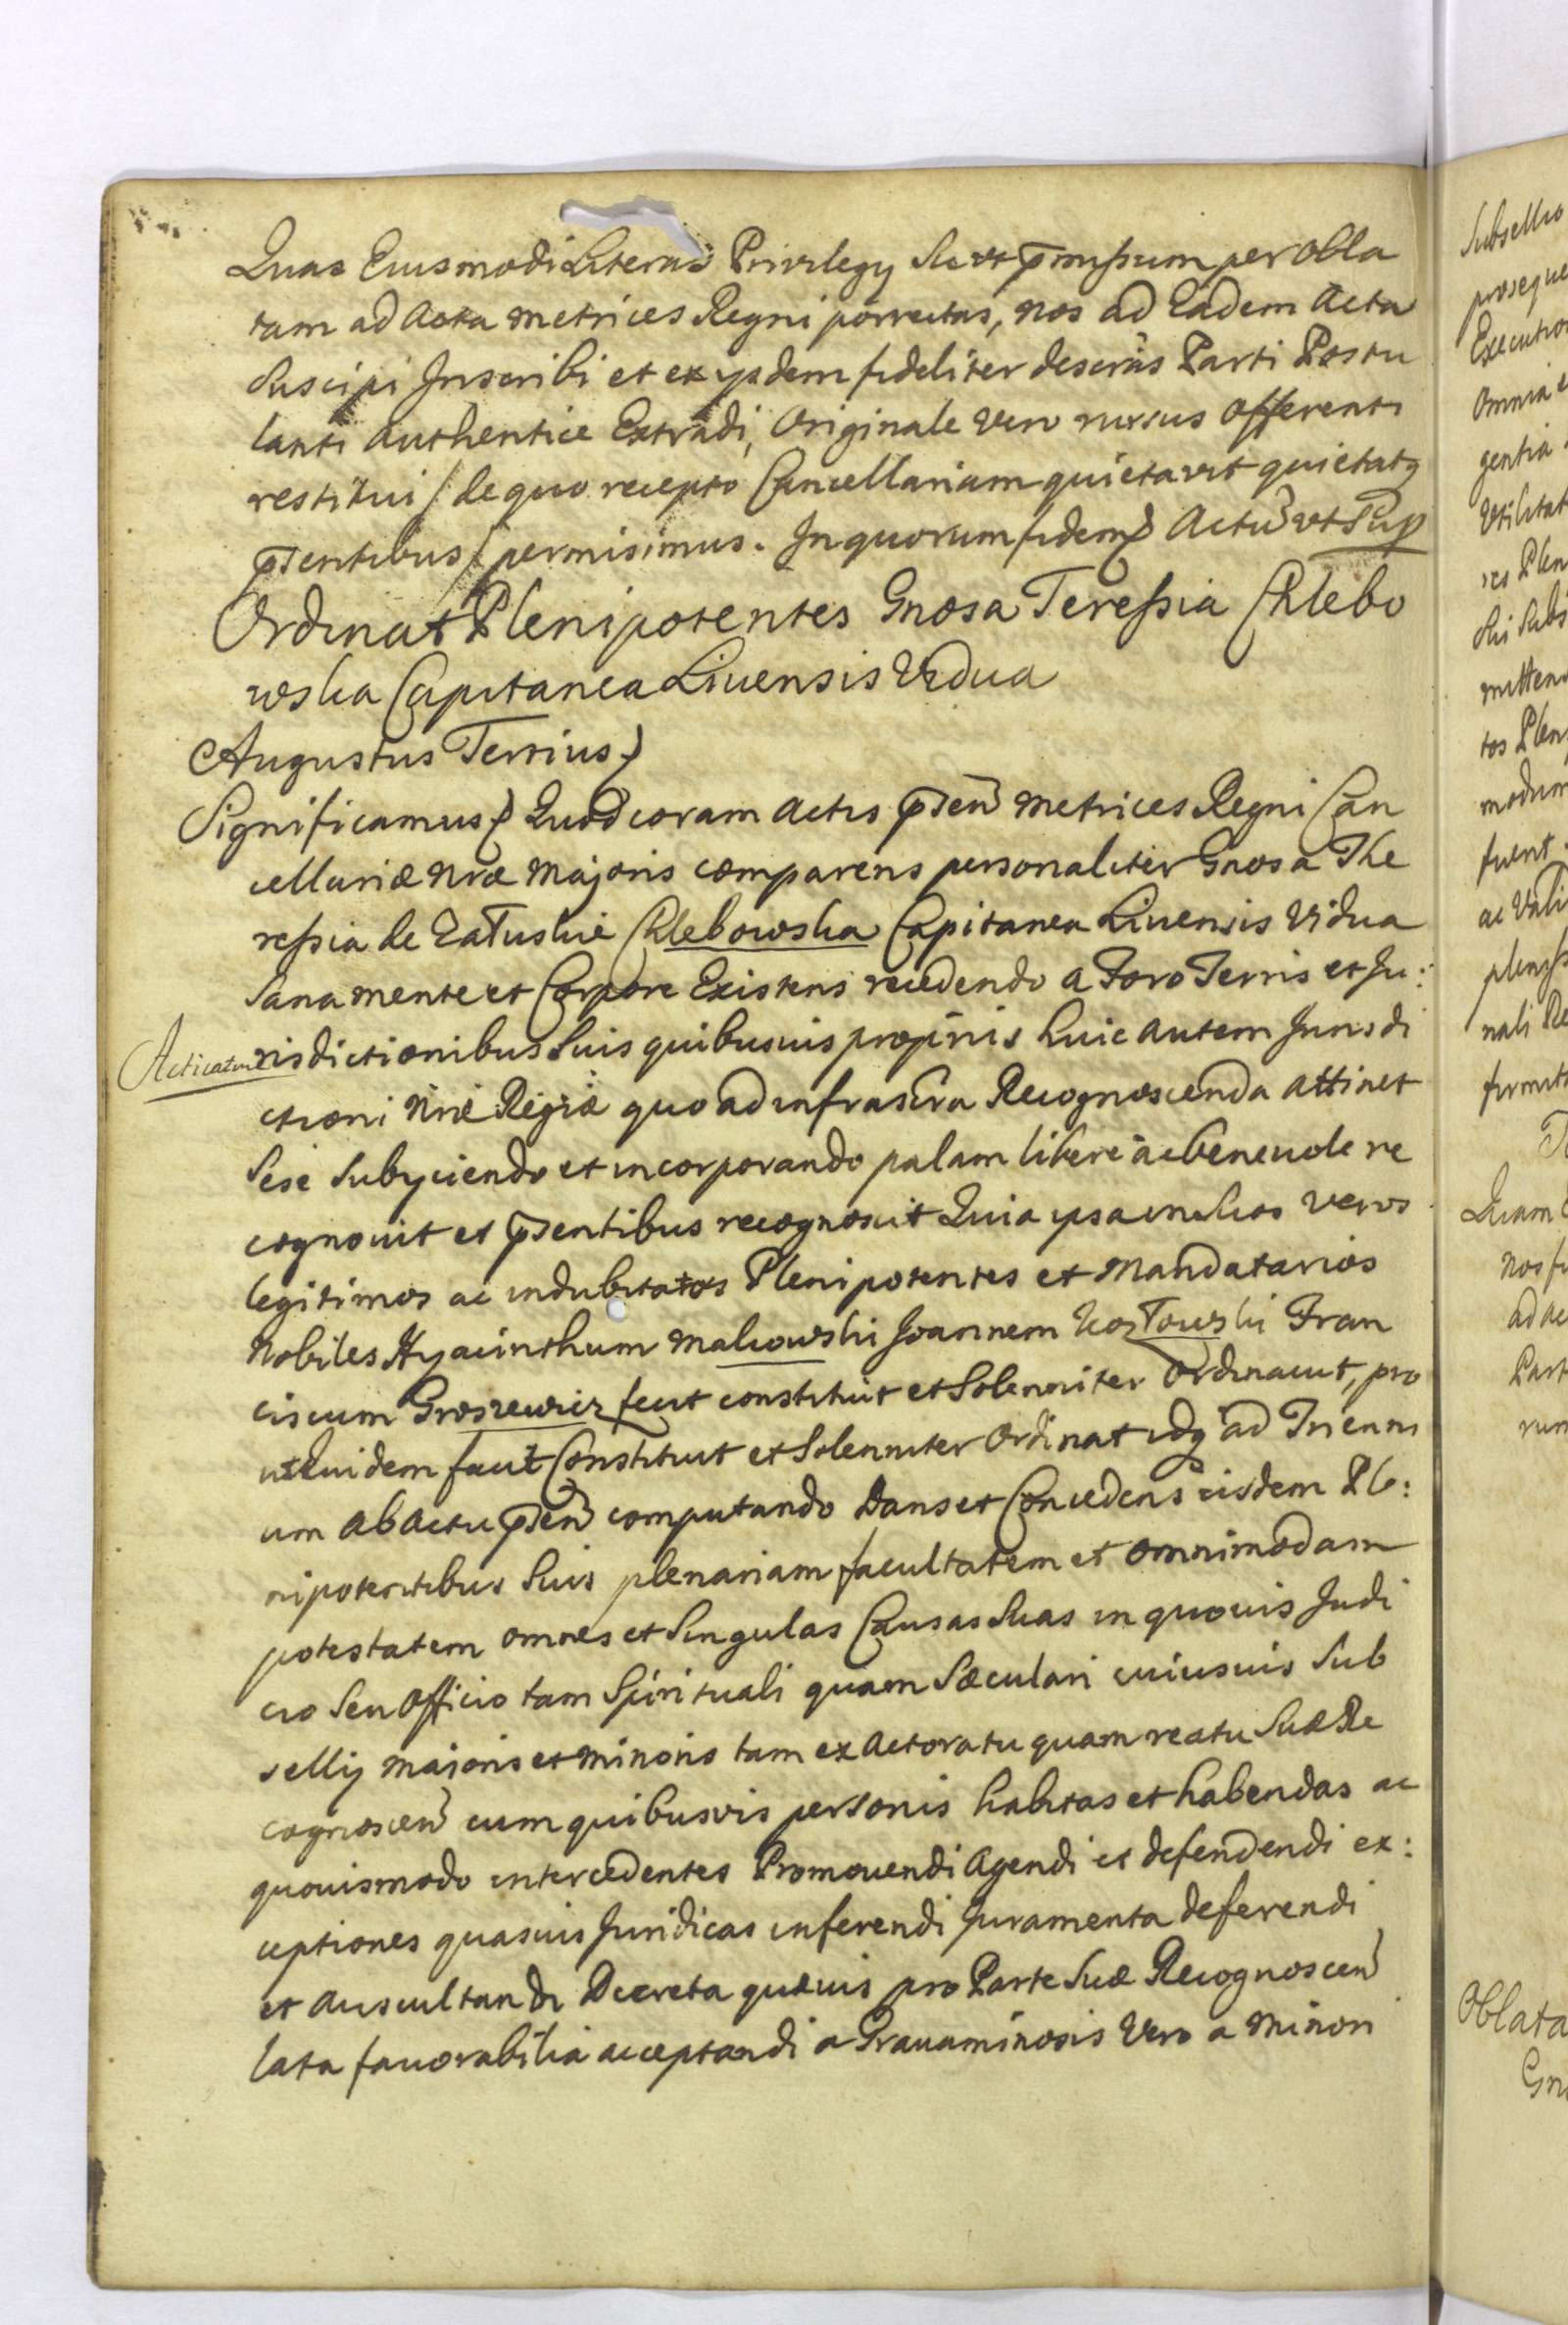 Quas Eiusmodi Literas Privilegy Su ut pmissum per Obla
tam ad Acta Metrices Regni porrectas, Nos ad Eadem Acta
Suscipi Inscribi et ex ysdem fideliter descrās Parti Postu
lanti Authentice Extradi, Originale Vero rursus Offerenti
restitui / de quo recepto Cancellariam quietavit quietatq
pntibus / permisimus. In quorum fidem Actū ut Sup
Ordinat Plenipotentes Gnosa Teressia Chlebo
wska Capitanea Liuensis Vidua
Augustus Tertius
Significamus Quod coram Actis psen Metrices Regni Can
cellariæ Nræ Majoris comparens personaliter Gnosa The
ressia de Załuskie Chlebowska Capitanea Liuensis Vidua
Sana mente et Corpore Existens recedendo a Foro Terris et Ju:
Acticatum
risdictionibus Suis quibusuis proprijs huic autem Jurisdi
ctioni Nræ Regiæ quo ad infrascra Recognoscenda attinet
Sese Subyciendo et incorporando palam libere ac beneuole re
cognouit et psentibus recognoscit Quia ipsa Veros
legitimos ac indubitatos Plenipotentes et Mandatarios
Nobiles Hyacinthum Malkowski Joannem Kozłowski Fran
ciscum Groszewicz fecit constituit et Solenniter Ordinauit, pro
ut quidem facit Constituit et Solenniter Ordinat idq ad Trienni
um ab Actu psen computando Dans et Concedens eisdem Ple:
nipotentibus Suis plenariam facultatem et omnimodam
potestatem omnes et Singulas Causas Suas in quouis Judi
cio Seu Officio tam Spirituali quam Sæculari cuiusuis Sub
sellij Maioris et Minoris tam ex Actoratu quam reatu Suæ Re
cognoscen cum quibusvis personis habitas et habendas ac
quouismodo intercedentes Promouendi Agendi et defendendi ex:
ceptiones quasuis Juridicas inferendi Juramenta deferendi
et Auscultandi Decreta quæuis pro Parte Suæ Recognoscen
lata fauorabilia acceptandi a Grauaminosis Vero a Minori
Subsellio
proseque
Executio
Omnia e
gentia
Utilitat
res Plen
Sui Subs
mitten
tos Plen
modum
fuerit
ac Vali
nali Re
firmit
Quam
Nos fi
ad Ac
Part
rum
Oblata
Gn